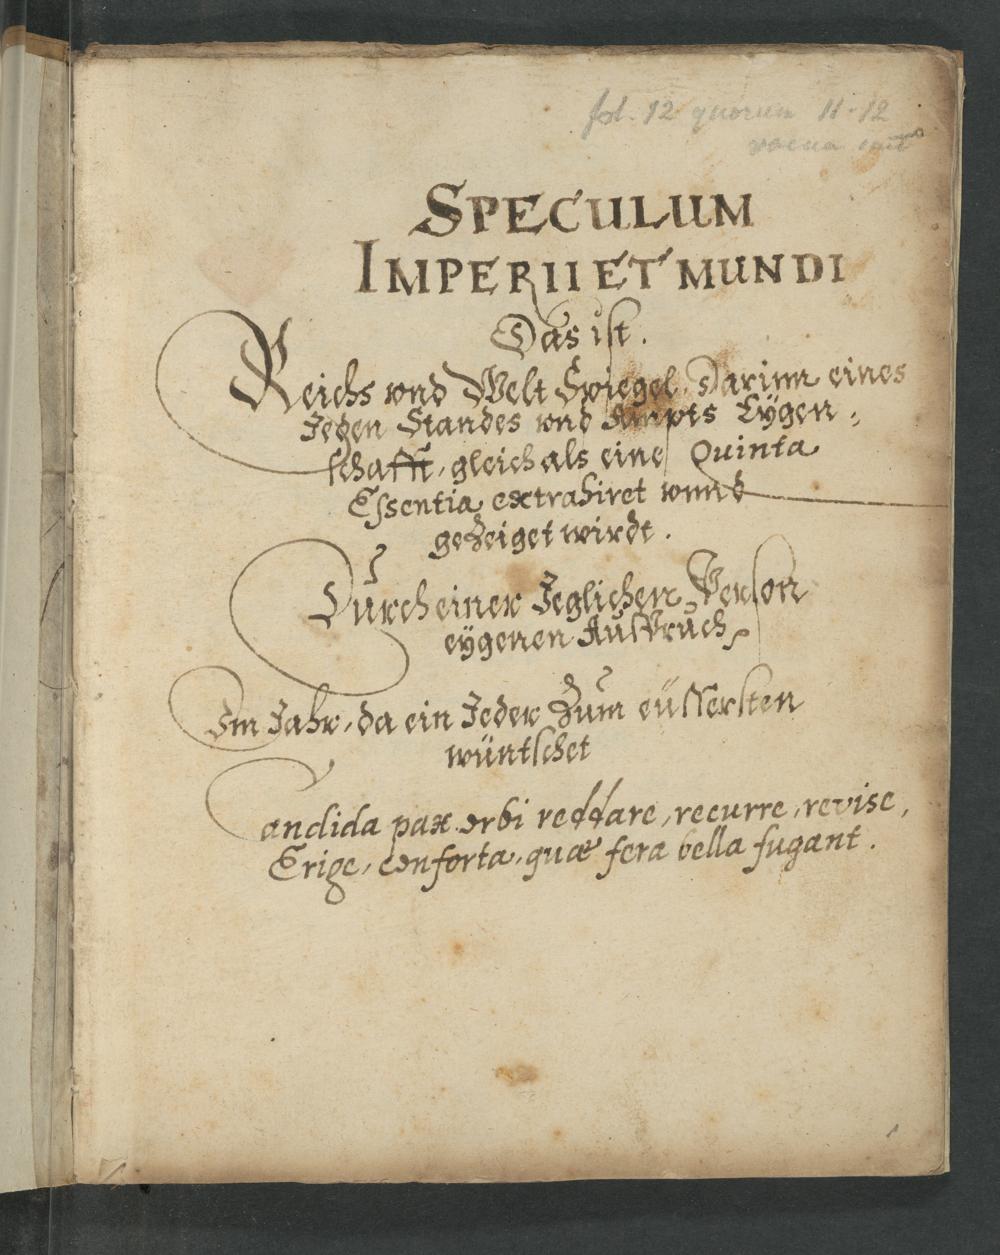 fol. 12 quorum 11-12
vacua sunt
SPECULUM
IMPERII ET MUNDI
Das ist.
Reichs vnd Welt Spiegel, Darinn eines
Jeden Standes vnd Ampts Eÿgen-
schafft, gleich als eine Quinta
Essentia extrahiret vnnd
gezeiget wirdt.
Durch einer Jeglichen Person
eÿgenen Außpruch
Im Jahr, da ein Jeder Zum eüssersten
wüntschet
Candida pax orbi reddare, recurre, revise,
Erige, conforta, quæ fera bella fugant.
1